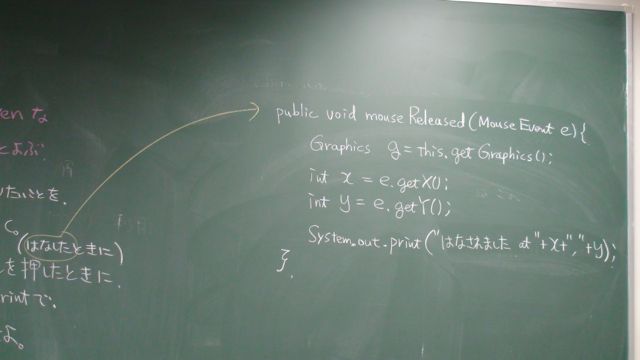 な
とよぶ.
たいことを.
(はなしたときに)
を押したときに.
rintで.
よ。
public void mouseReleased(MouseEvent e){
Graphics g=this.getGraphics();
int x = e.getX();
int y = e.getY();
System.out.print("はなされました at"+x+","+y);
}